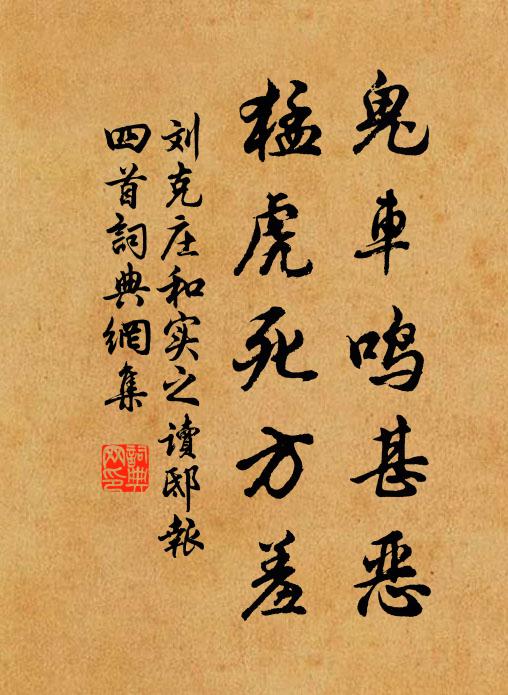 鬼車鸣甚恶
猛虎死方羞
刘克庄和实之读邸報
四首詞典網集
詞典網印